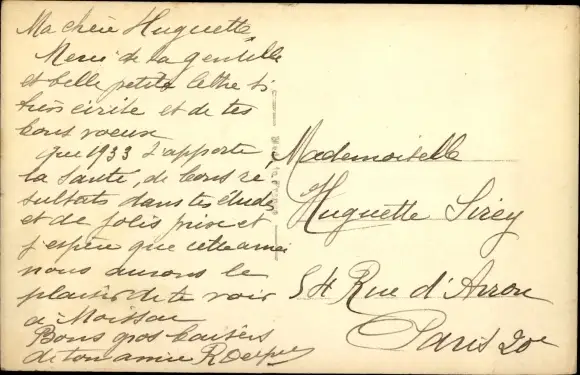 Ma chère Huguette
Merci de la gentille
et belle petite lettre si
bien écrite et de tes
bons voeux
que 1933 t'apporte
la santé, de bons ré
sultats dans tes études
et de jolis prix et
j'espère que cette année
nous aurons le
plaisir de te voir
à Moisson
Bons gros baisers
de ton amie
Mademoiselle
Huguette Sirey
54 Rue d'Avron
Paris 20e